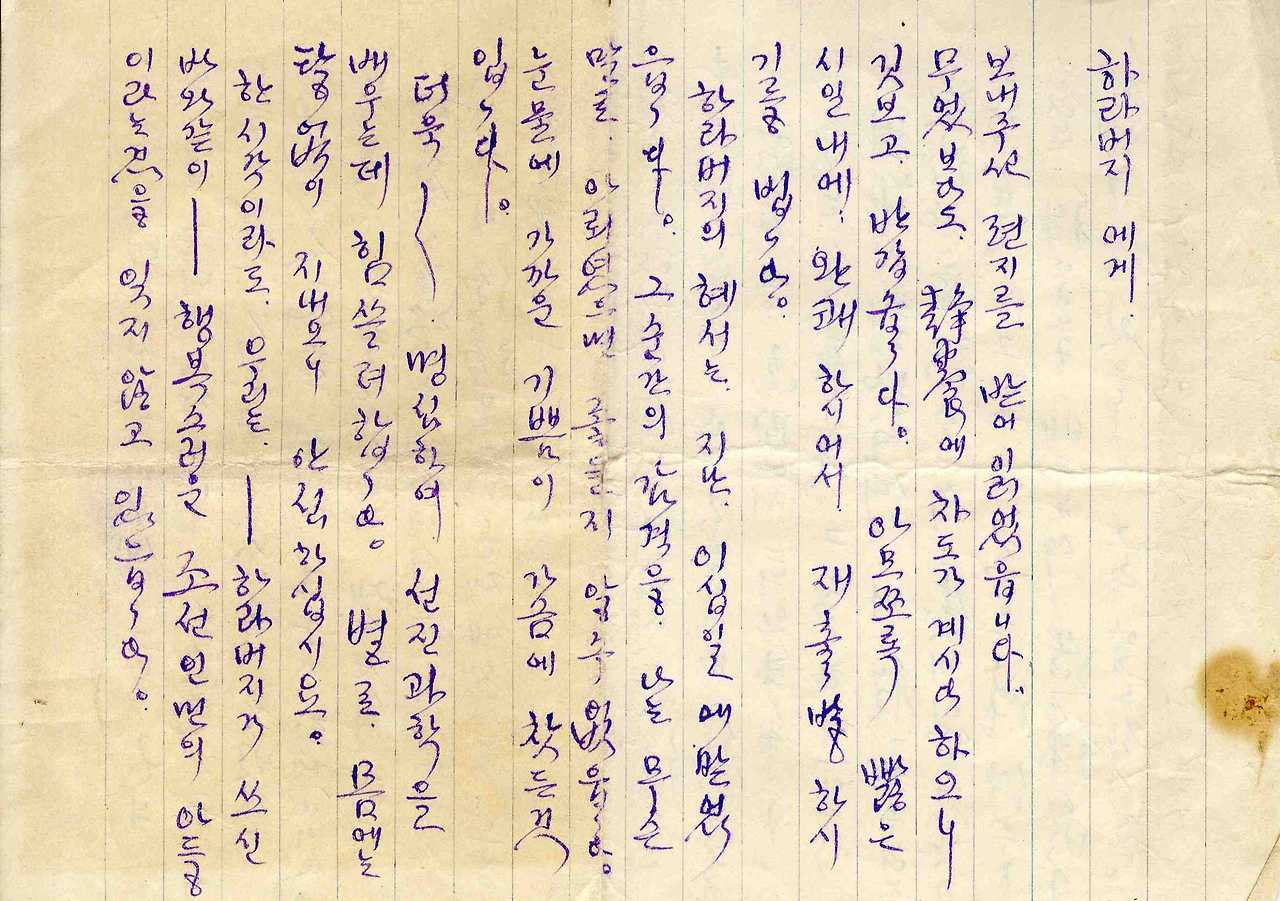 하라버지 에게.
보내주신 편지를 받어 읽었읍니다.
무엇보다도. 에 차도가 계시다 하오니
깃보고. 반갑습니다. 아므쪼록 빠른
시일내에. 완쾌 하시여서 재출발 하시
기를 법니다.
하라버지의 혜서는. 지난. 이십일 에 받었
읍니다. 그 순간의 감격을. 나는 무슨
말로. 아뢰였으면 좋은지 알수 없읍니다.
눈물에 가까운 기쁨이 가슴에 찻든것
입니다.
더욱 — 명심하여 선진과학을
배우는데 힘쓸려 합니다. 별로. 몸에는
탈 없이 지내오니 안심하십시요.
한시각이라도. 우리는. — 하라버지가 쓰신
바와같이 — 행복스러운 조선인민의 아들
이라는것을 잊지 않고 있읍니다.